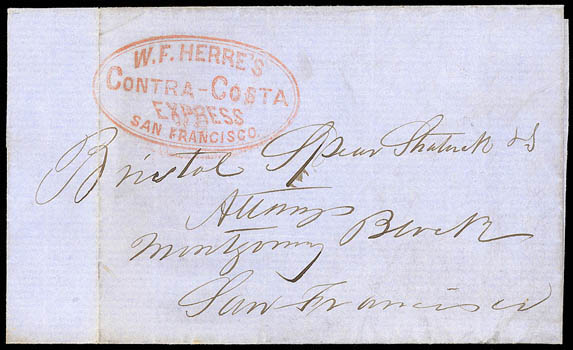 W. F. HERRE'S
CONTRA-COSTA
EXPRESS
SAN FRANCISCO.
Bristol Spear Shattuck
Attnys
Montgomery Block
San Francisco